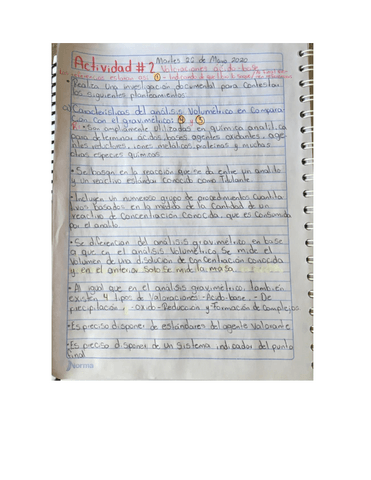 Martes 26 de Mayo 2020
Actividad # 2 Valoraciones ácido-base
Realiza una investigación documental para contestar
los siguientes planteamientos
a) Características del análisis volumétrico en compara-
ción con el gravimétrico
R: • Son ampliamente utilizadas en química analítica
para determinar ácidos, bases, agentes oxidantes, age-
ntes reductores, iones metálicos, proteínas y muchas
otras especies químicas
• Se basan en la reacción que se da entre un analito
y un reactivo estándar conocido como Titulante
• Incluyen un numeroso grupo de procedimientos cuantita
tivos basados en la medida de la cantidad de un
reactivo de concentración conocida que es consumida
por el analito
• Se diferencian del análisis gravimétrico, en base
a que en el análisis volumétrico se mide el
volumen de una disolución de concentración conocida
y en el anterior solo se mide la masa
• Al igual que en el análisis gravimétrico también
existen 4 tipos de valoraciones - Acido-base - De
precipitación - oxido-Reducción y Formación de Complejos
• Es preciso disponer de estándares del agente valorante
• Es preciso disponer de un sistema indicador del punto
final
Norma